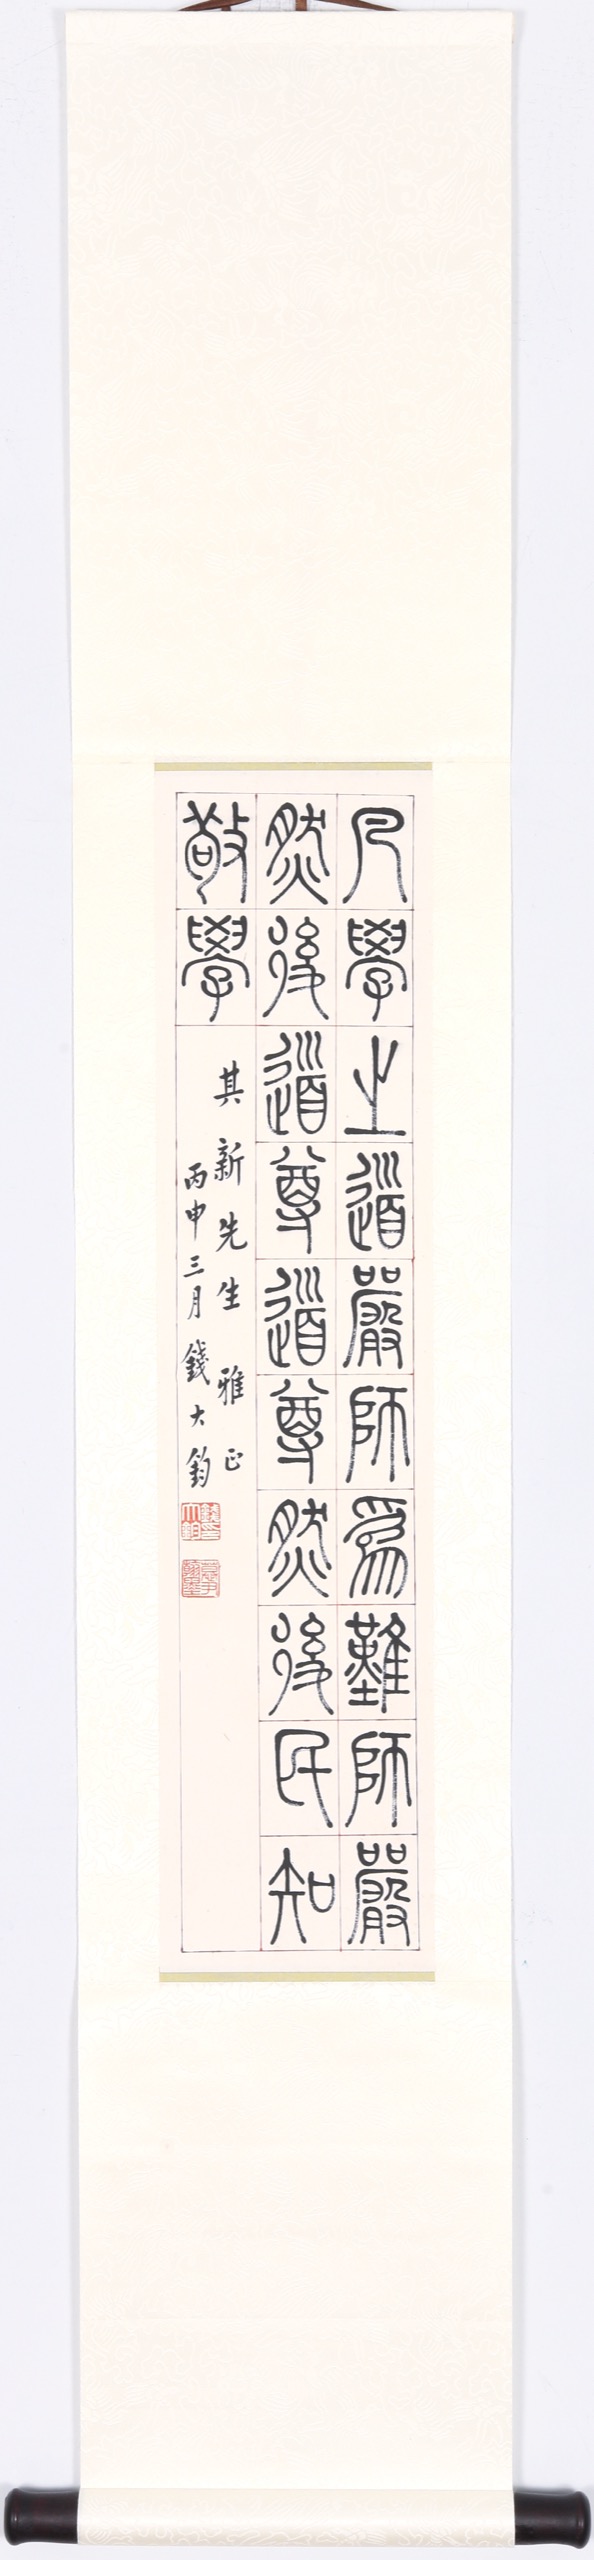 凡學之道嚴師為難師嚴
然後道尊道尊然後民知
敬學
其新先生雅正
丙申三月錢大鈞